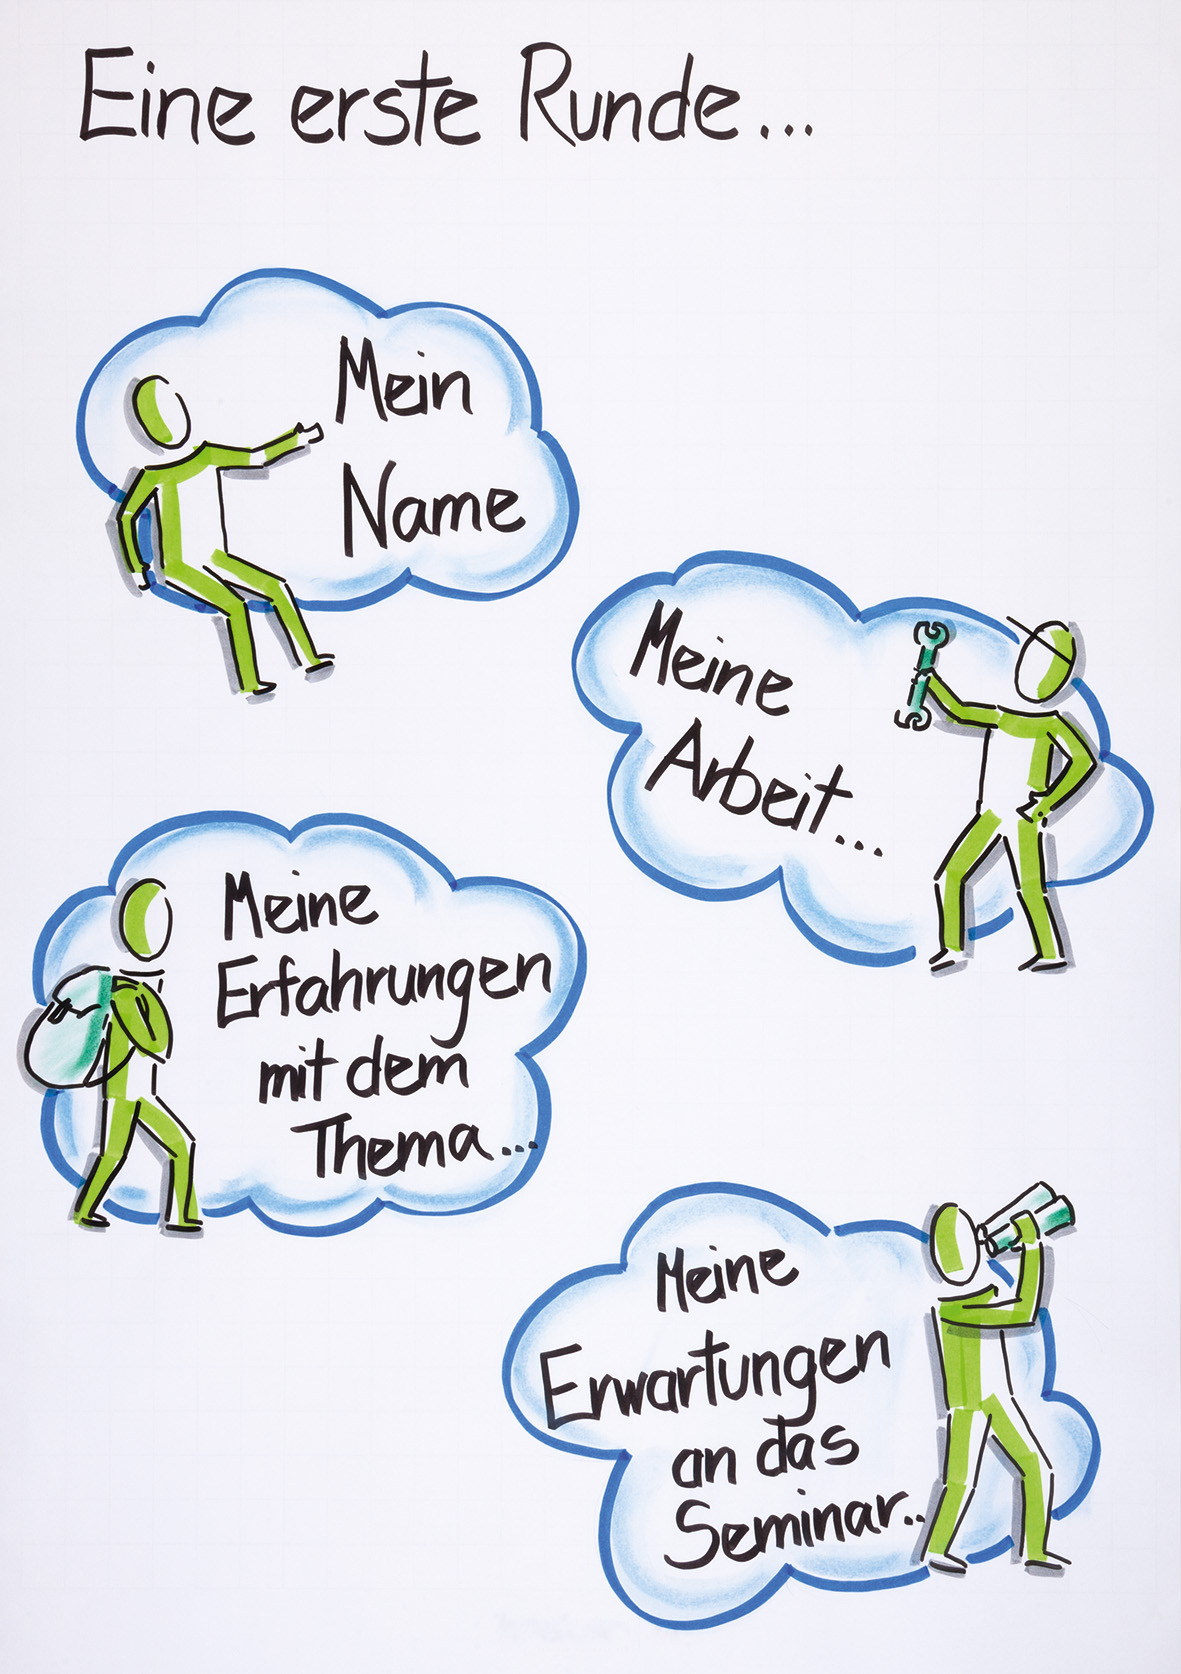 Eine erste Runde...
Mein
Name
Meine
Arbeit...
Meine
Erfahrungen
mit dem
Thema...
Meine
Erwartungen
an das
Seminar..